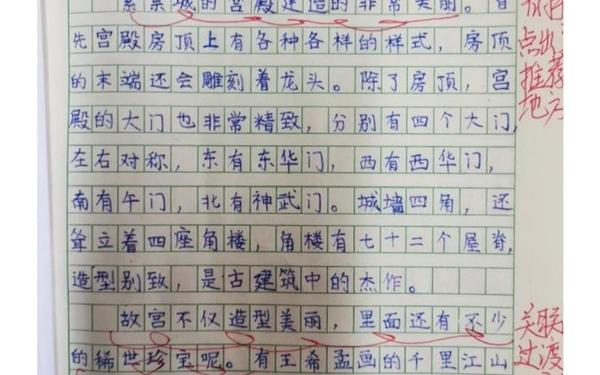 紫禁城的宫殿建造的非常美丽。首
先宫殿房顶上有各种各样的样式，房顶
的末端还会雕刻着龙头。除了房顶，宫
殿的大门也非常精致，分别有四个大门，
左右对称，东有东华门，西有西华门，
南有午门，北有神武门。城墙四角，还
耸立着四座角楼，角楼有七十二个屋脊，
造型别致，是古建筑中的杰作。
故宫不仅造型美丽，里面还有不少
的稀世珍宝呢。有王希孟画的千里江山
点出
推荐
地方
关联
过渡